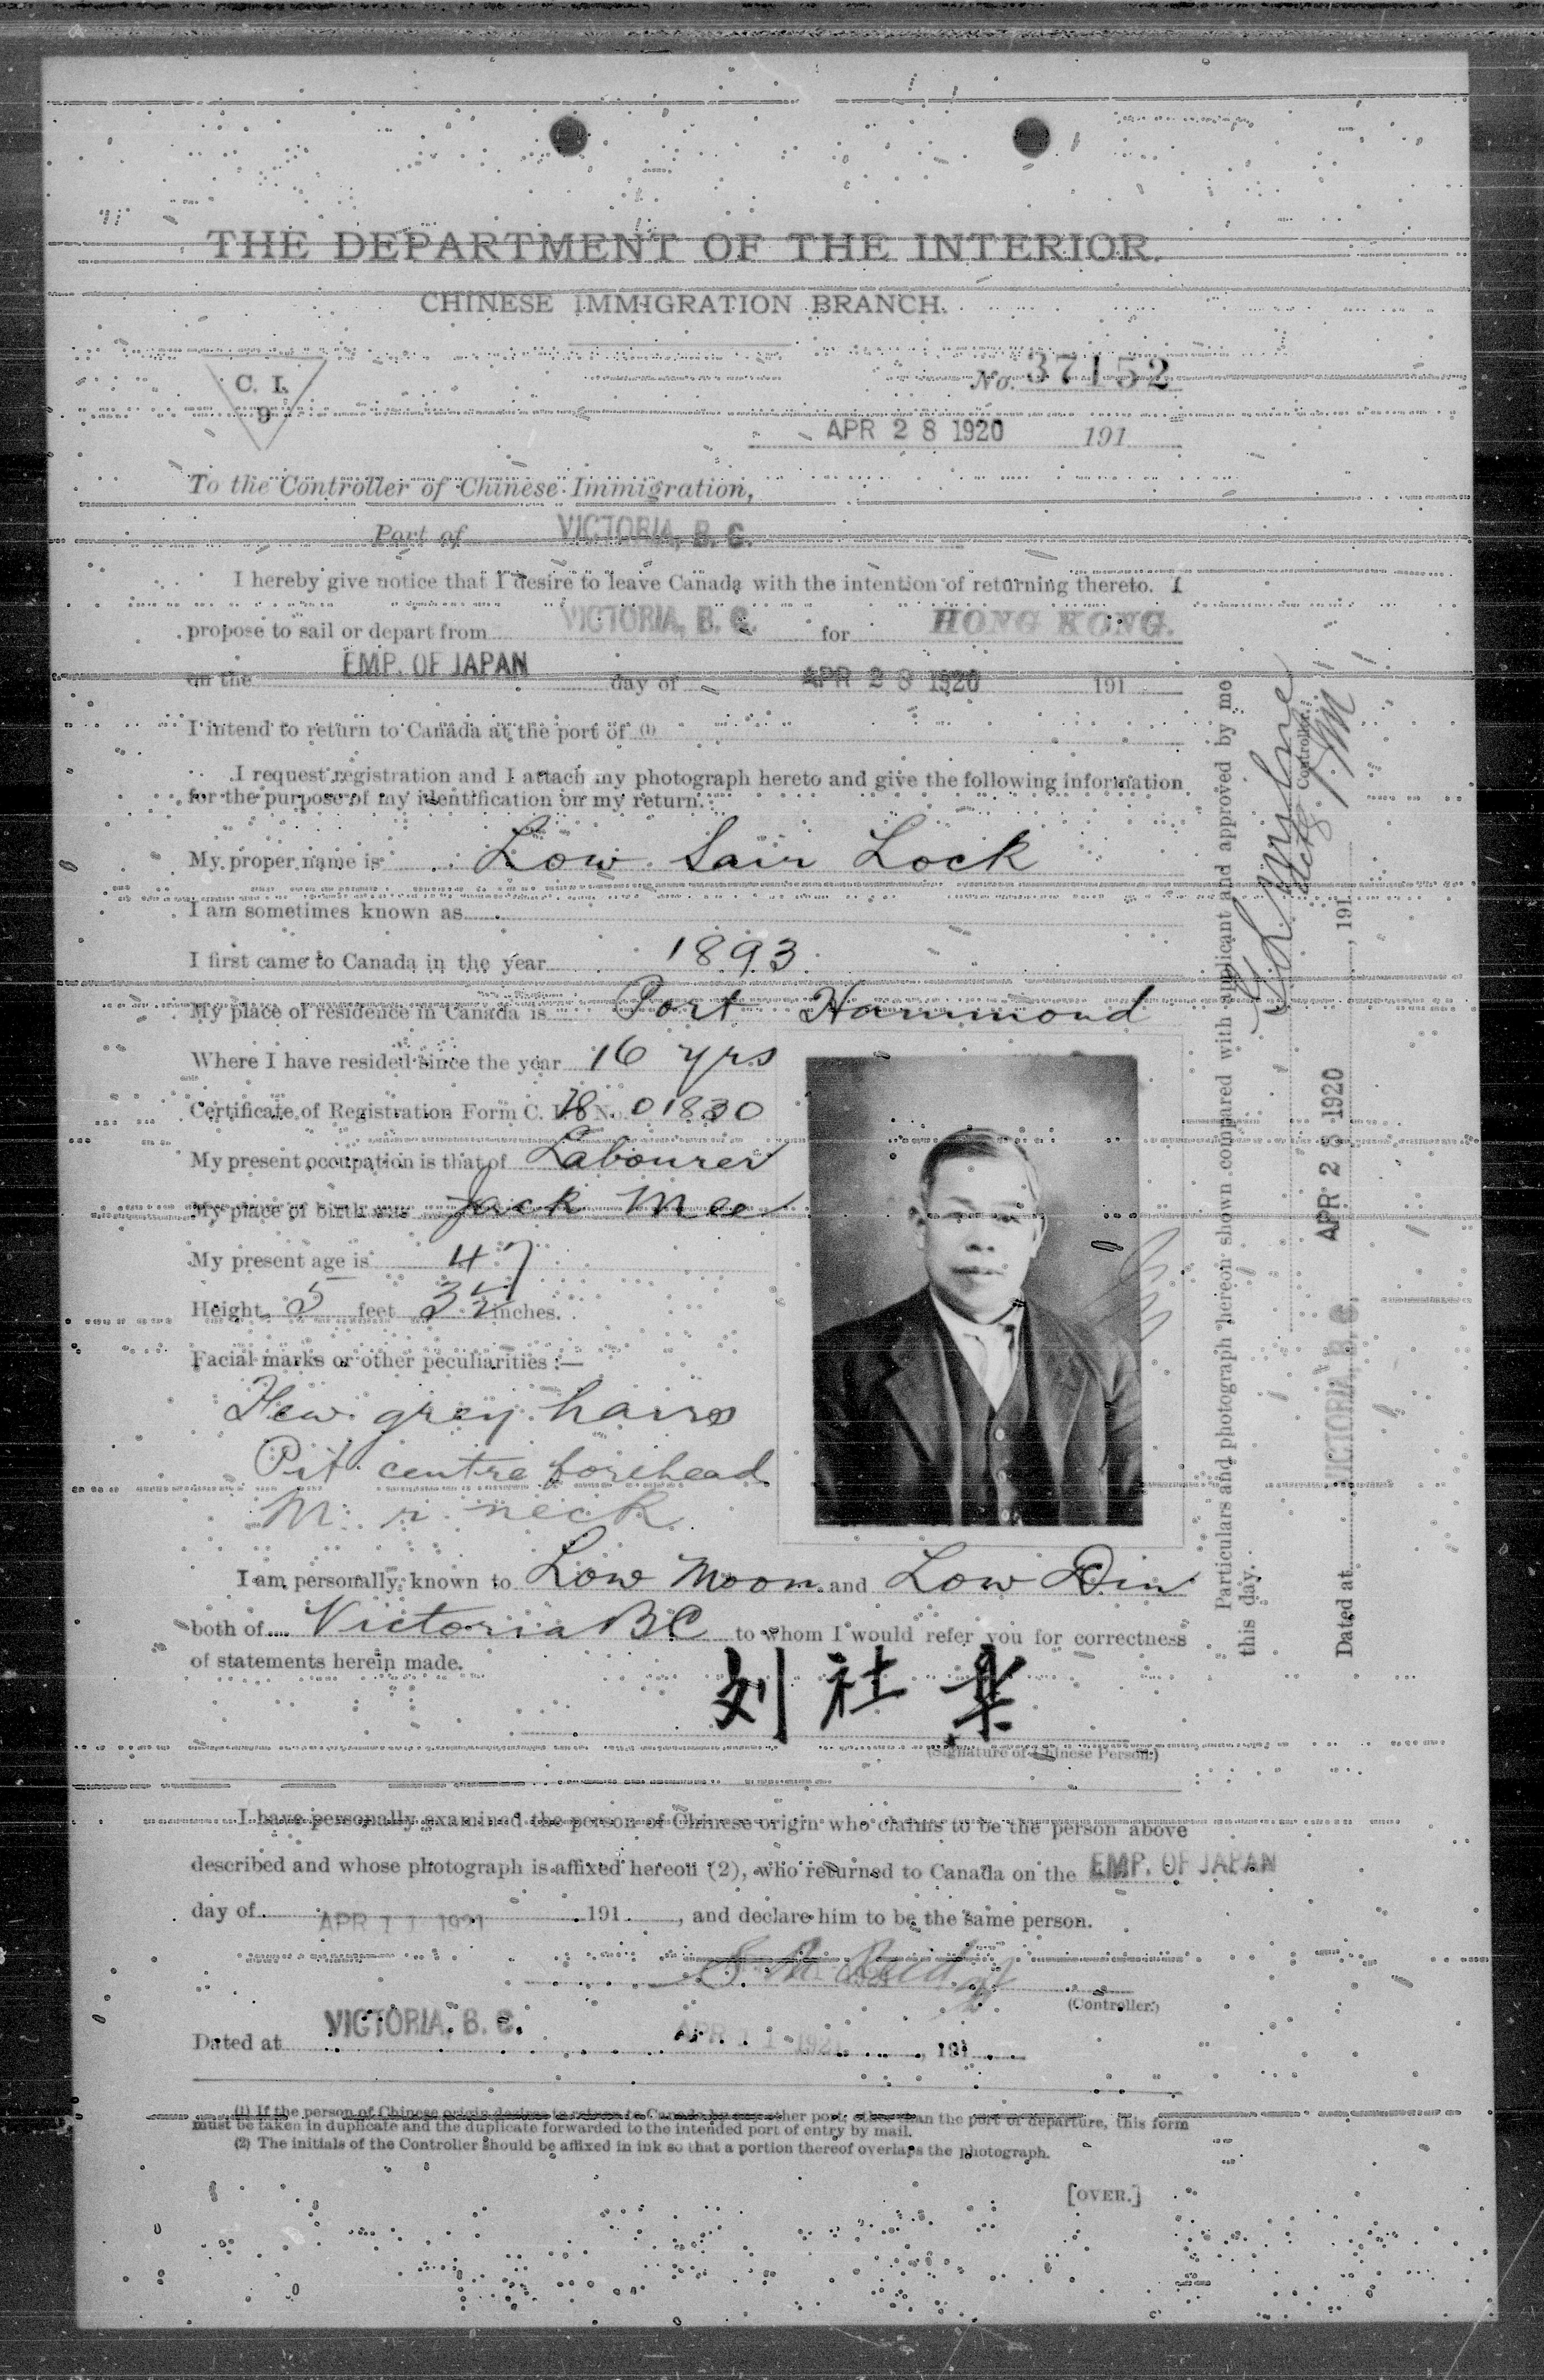 THE DEPARTMENT OF THE INTERIOR.
CHINESE IMMIGRATION BRANCH.
C. I.
9
No. 37152
APR 28 1920 191
To the Controller of Chinese Immigration,
Port of VICTORIA, B. C.
I hereby give notice that I desire to leave Canada with the intention of returning thereto. I
propose to sail or depart from VICTORIA, B. C. for HONG KONG.
on the EMP. OF JAPAN day of APR 28 1920 191
I intend to return to Canada at the port of (1)
I request registration and I attach my photograph hereto and give the following information
for the purpose of my identification on my return.
My proper name is Low Sair Lock
I am sometimes known as
I first came to Canada in the year 1893
My place of residence in Canada is Port Hammond
Where I have resided since the year 16 yrs
Certificate of Registration Form C. I. No. 01830
My present occupation is that of Labourer
My place of birth was Jack Mee
My present age is 47
Height 5 feet 3½ inches.
Facial marks or other peculiarities :—
Few grey hairs
Pit centre forehead
M. r. neck
I am personally known to Low Moon and Low Din
both of Victoria BC to whom I would refer you for correctness
of statements herein made.
刘社
(Signature of Chinese Person.)
I have personally examined the person of Chinese origin who claims to be the person above
described and whose photograph is affixed hereon (2), who returned to Canada on the EMP. OF JAPAN
day of APR 11 1921 191 , and declare him to be the same person.
(Controller.)
Dated at VICTORIA, B. C. APR 11 1921 , 191
(1) If the person of Chinese origin desires to return to Canada by any other port, other than the port of departure, this form
must be taken in duplicate and the duplicate forwarded to the intended port of entry by mail.
(2) The initials of the Controller should be affixed in ink so that a portion thereof overlaps the photograph.
[OVER.]
Particulars and photograph hereon shown compared with applicant and approved by me
this day.
Controller.
Dated at VICTORIA, B. C. APR 28 1920 , 191